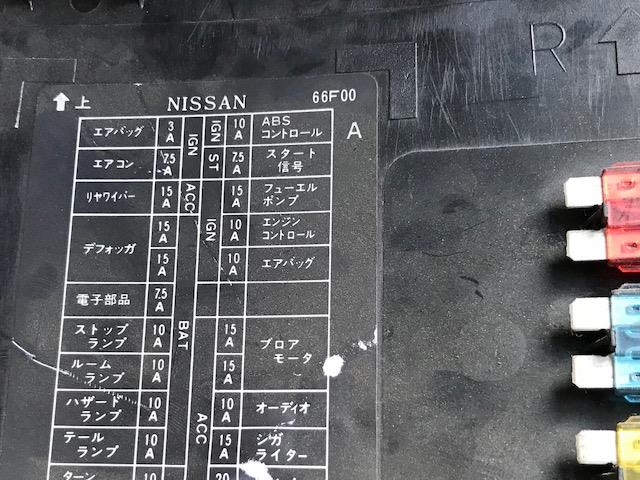 上 NISSAN 66F00
R
A
エアバッグ 3A IGN IGN ST 10A ABSコントロール
エアコン 7.5A 7.5A スタート信号
リヤワイパー 15A ACC 15A フューエルポンプ
デフォッガ 15A IGN 10A エンジンコントロール
15A 10A エアバッグ
電子部品 7.5A BAT
ストップランプ 10A 15A ブロアモータ
ルームランプ 10A 15A
ハザードランプ 10A ACC 10A オーディオ
テールランプ 10A 15A シガライター
ターン 10 20